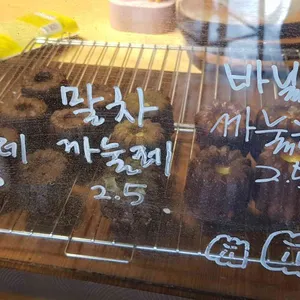 말차
까눌레
2.5
바닐
까눌레
2.5
레